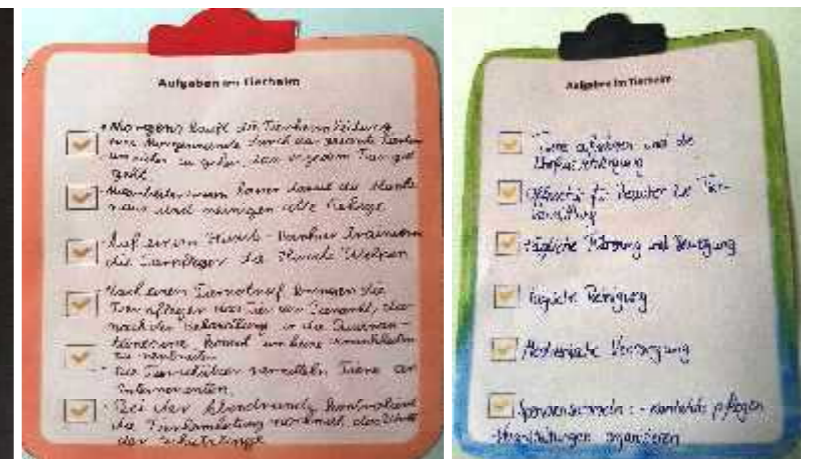 Aufgaben im Tierheim
Morgens läuft die Tierheimleitung
eine Morgenrunde durch das gesamte Tierheim
um sicher zu gehen, das es jedem Tier gut
geht
Mitarbeiter innen danach die Hunde
raus und reinigen alle Gehege
Auf einem Hunde- trainieren
die Tierpfleger die Hunde Welpen
Nach einem Tiernotruf bringen die
Tierpfleger das Tier zum Tierarzt, das
nach der Behandlung in die Quaran-
täne kommt um keine Krankheiten
zu verbreiten
Die vermitteln Tiere an
Interessenten.
Bei der Abendrunde kontrolliert
die Tierheimleitung nochmal
der Schützlinge
Aufgaben im Tierheim
Tiere aufnehmen und die
Erstversorgung
für Besucher zur Tier-
vermittlung
tägliche Fütterung und Bewegung
tägliche Reinigung
Medizinische Versorgung
Spendensammeln: - Kontakte pflegen
-Veranstaltungen organisieren